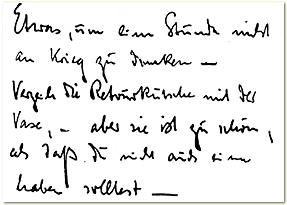 Etwas, um eine Stunde nicht
an Krieg zu denken –
Vergeh die Retourkutsche mit der
Vase, – aber sie ist zu schön,
als daß du nicht auch eine
haben solltest –